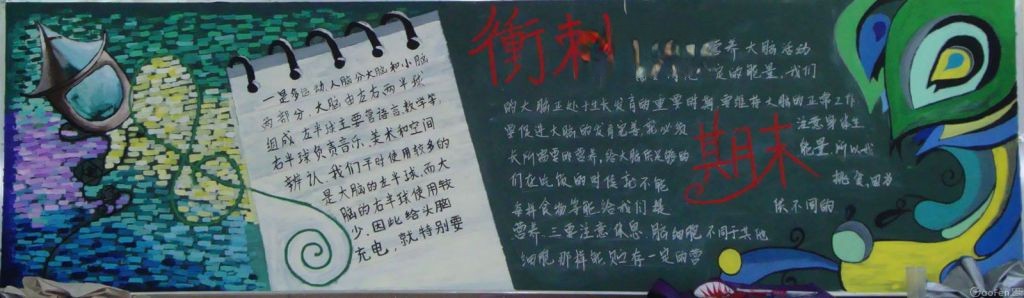 一是多运动,人脑分大脑和小脑
两部分,大脑由左右两半球
组成,左半球主要管语言,数学等,
右半球负责音乐,美术和空间
辨认,我们平时使用较多的
是大脑的左半球,而大
脑的右半球使用较
少,因此给头脑
充电,就特别要
衝刺
期末
营养 大脑活动
定的能量,我们
的大脑正处于生长发育的重要时期,要维持大脑的正常工作
要促进大脑的发育完善就必须
注意身体生
长所需要的营养,给大脑供足够的
能量,所以我
们在吃饭的时候就不能
挑食,因为
每种食物等能给我们提
供不同的
营养,三要注意休息,脑细胞不同于其他
细胞那样能贮存一定的营